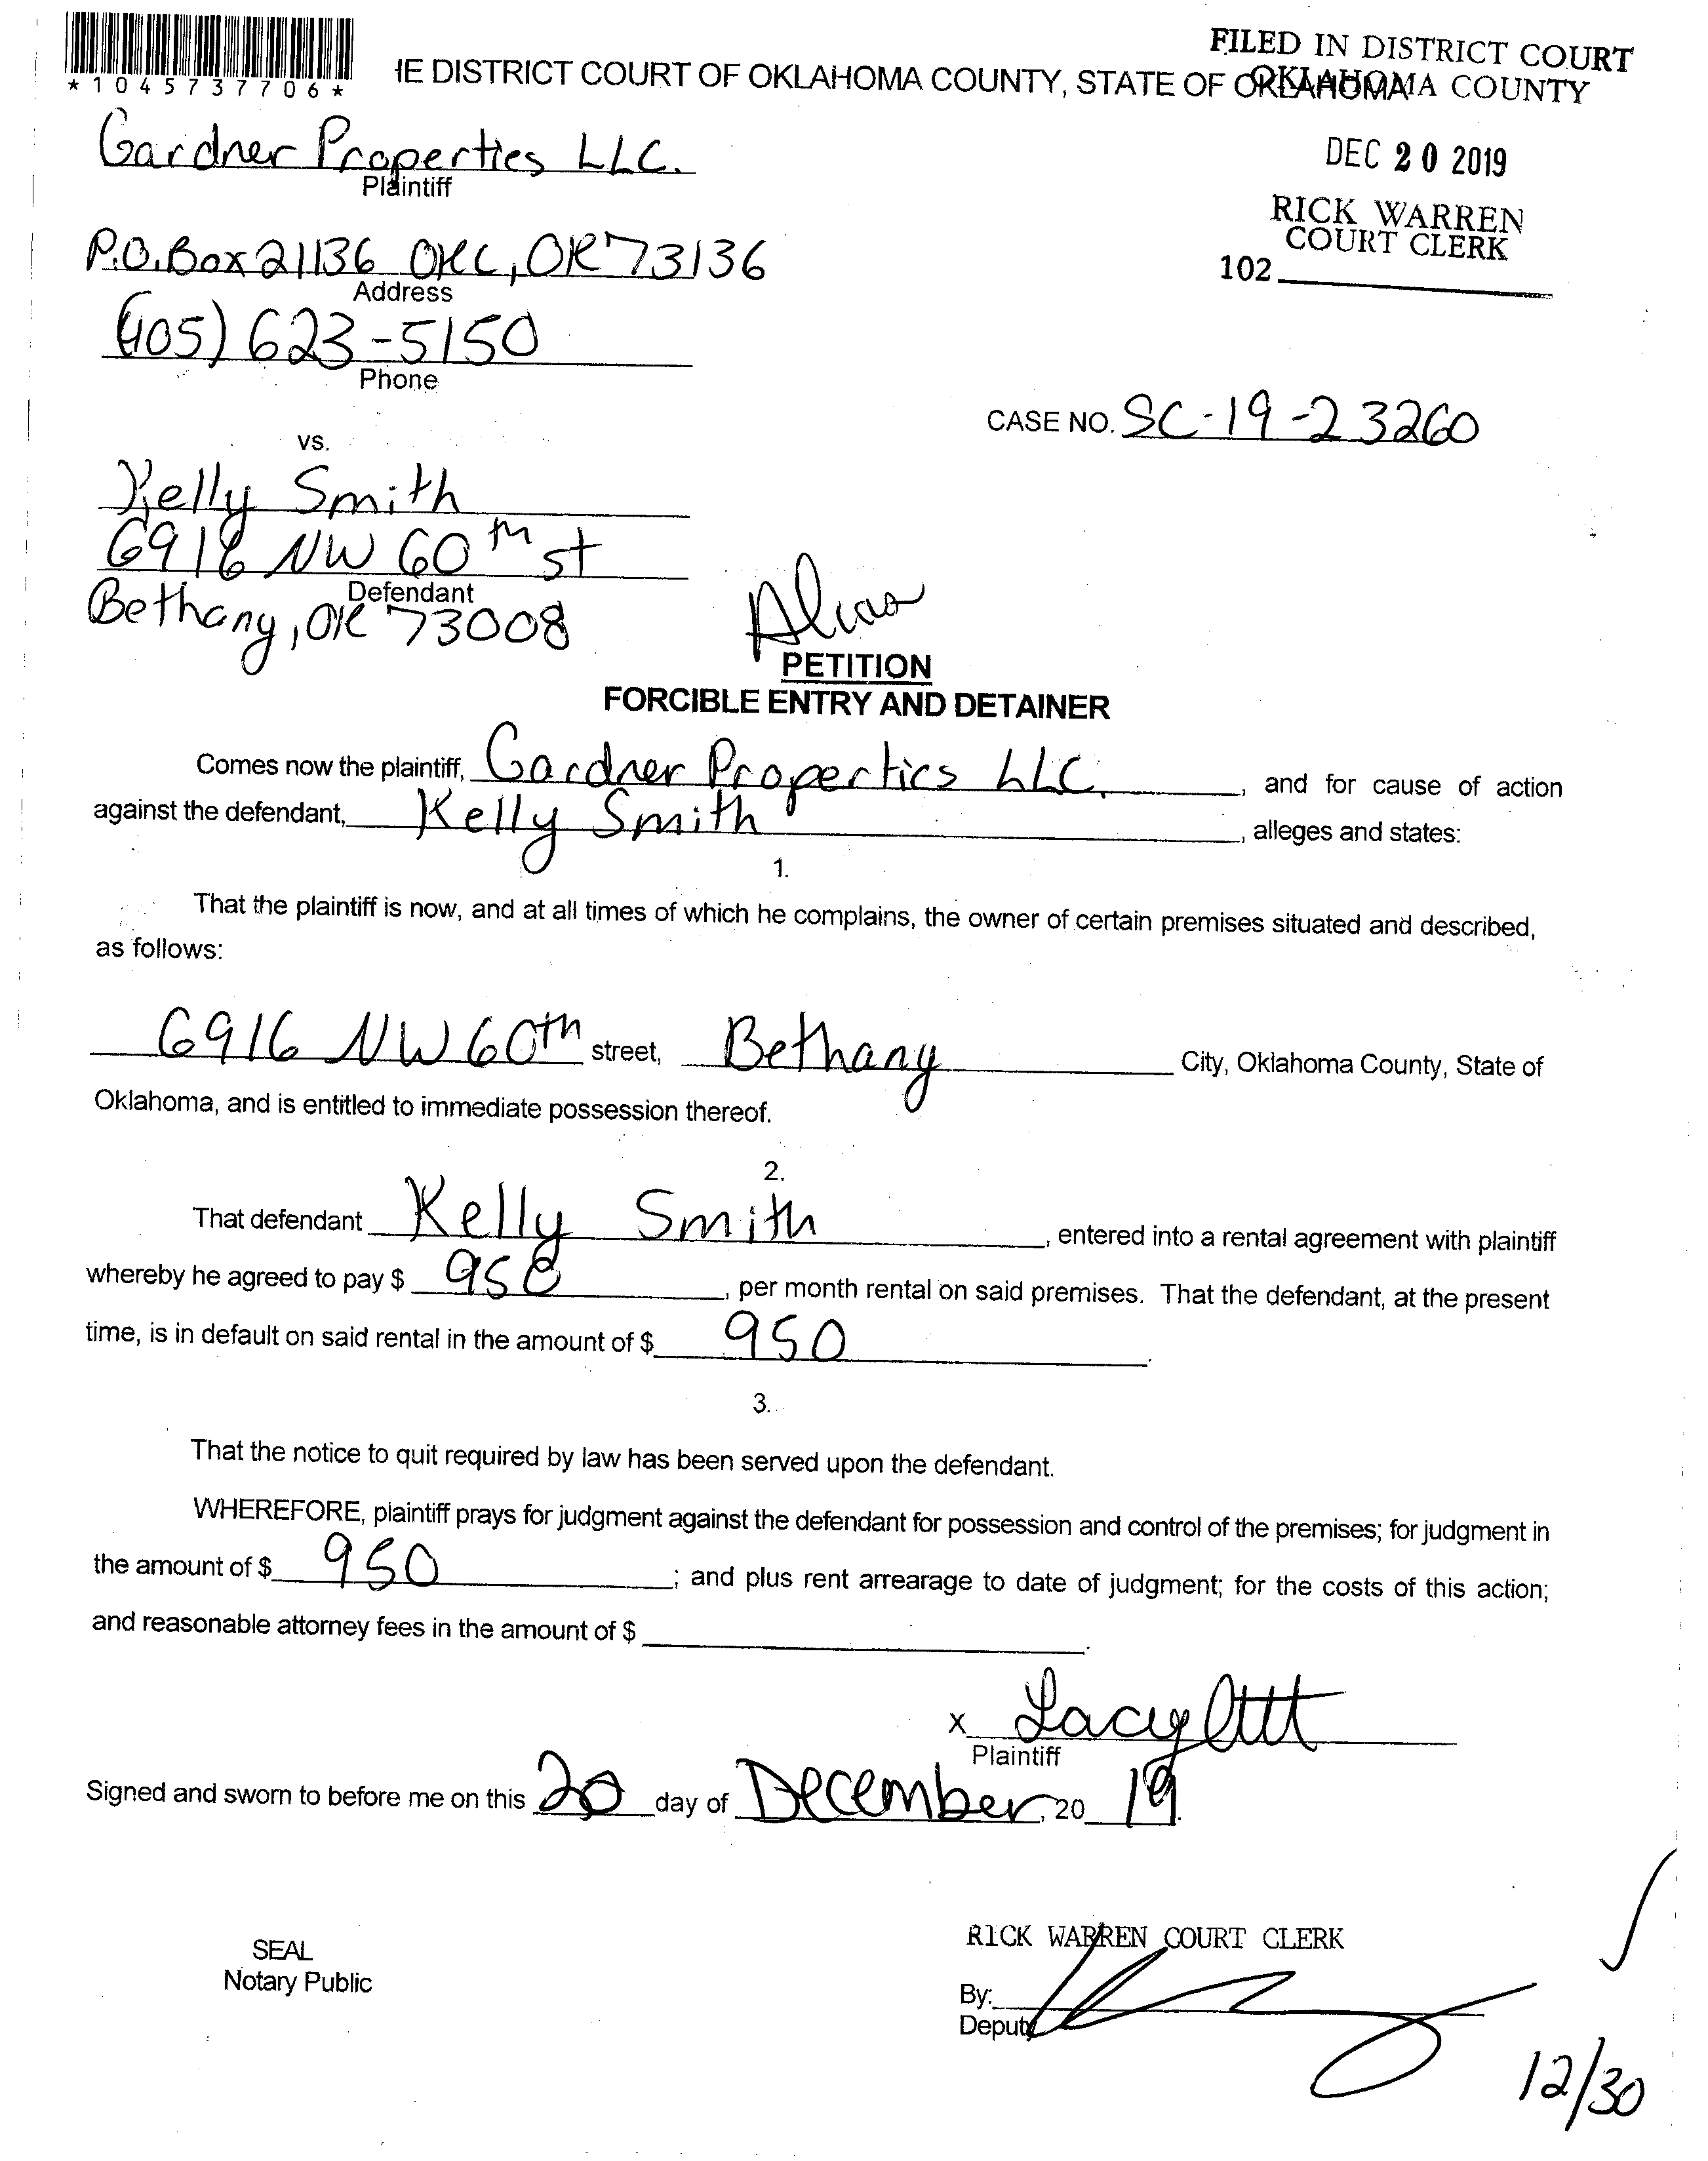 *1045737706*
IE DISTRICT COURT OF OKLAHOMA COUNTY, STATE OF OKLAHOMA
FILED IN DISTRICT COURT
OKLAHOMA COUNTY
DEC 20 2019
RICK WARREN
COURT CLERK
102
Gardner Properties LLC.
Plaintiff
P.O. Box 21136 OKC, OK 73136
Address
(405) 623-5150
Phone
CASE NO. SC-19-23260
vs.
Kelly Smith
6916 NW 60th st
Defendant
Bethany, OK 73008
Alias
PETITION
FORCIBLE ENTRY AND DETAINER
Comes now the plaintiff, Gardner Properties LLC., and for cause of action
against the defendant, Kelly Smith, alleges and states:
1.
That the plaintiff is now, and at all times of which he complains, the owner of certain premises situated and described,
as follows:
6916 NW 60th street, Bethany City, Oklahoma County, State of
Oklahoma, and is entitled to immediate possession thereof.
2.
That defendant Kelly Smith, entered into a rental agreement with plaintiff
whereby he agreed to pay $ 950, per month rental on said premises. That the defendant, at the present
time, is in default on said rental in the amount of $ 950.
3.
That the notice to quit required by law has been served upon the defendant.
WHEREFORE, plaintiff prays for judgment against the defendant for possession and control of the premises; for judgment in
the amount of $ 950; and plus rent arrearage to date of judgment; for the costs of this action;
and reasonable attorney fees in the amount of $.
x Lacy
Plaintiff
Signed and sworn to before me on this 20 day of December, 20 19.
SEAL
Notary Public
RICK WARREN COURT CLERK
By:
Deputy
12/30